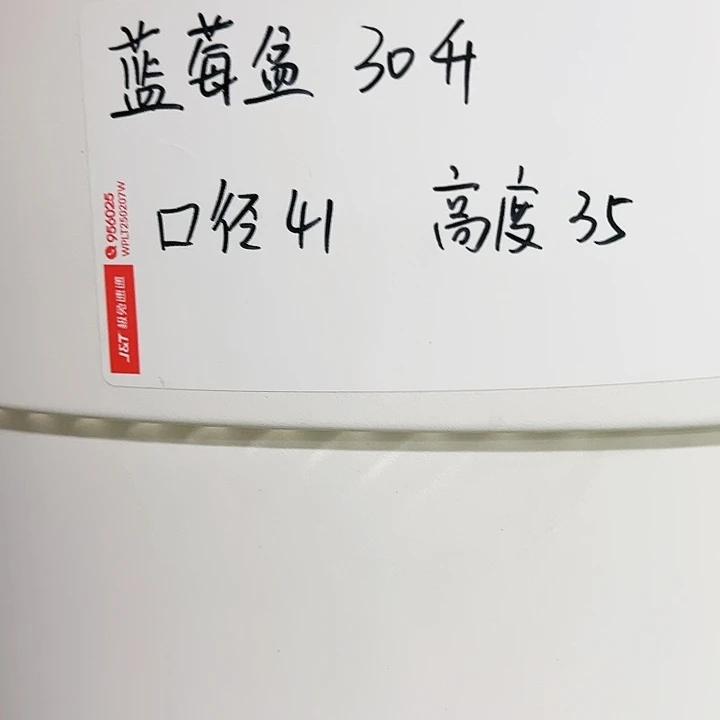 蓝莓盆 30升
口径41 高度35
956025
WPLT250207W
J&T 极兔速递